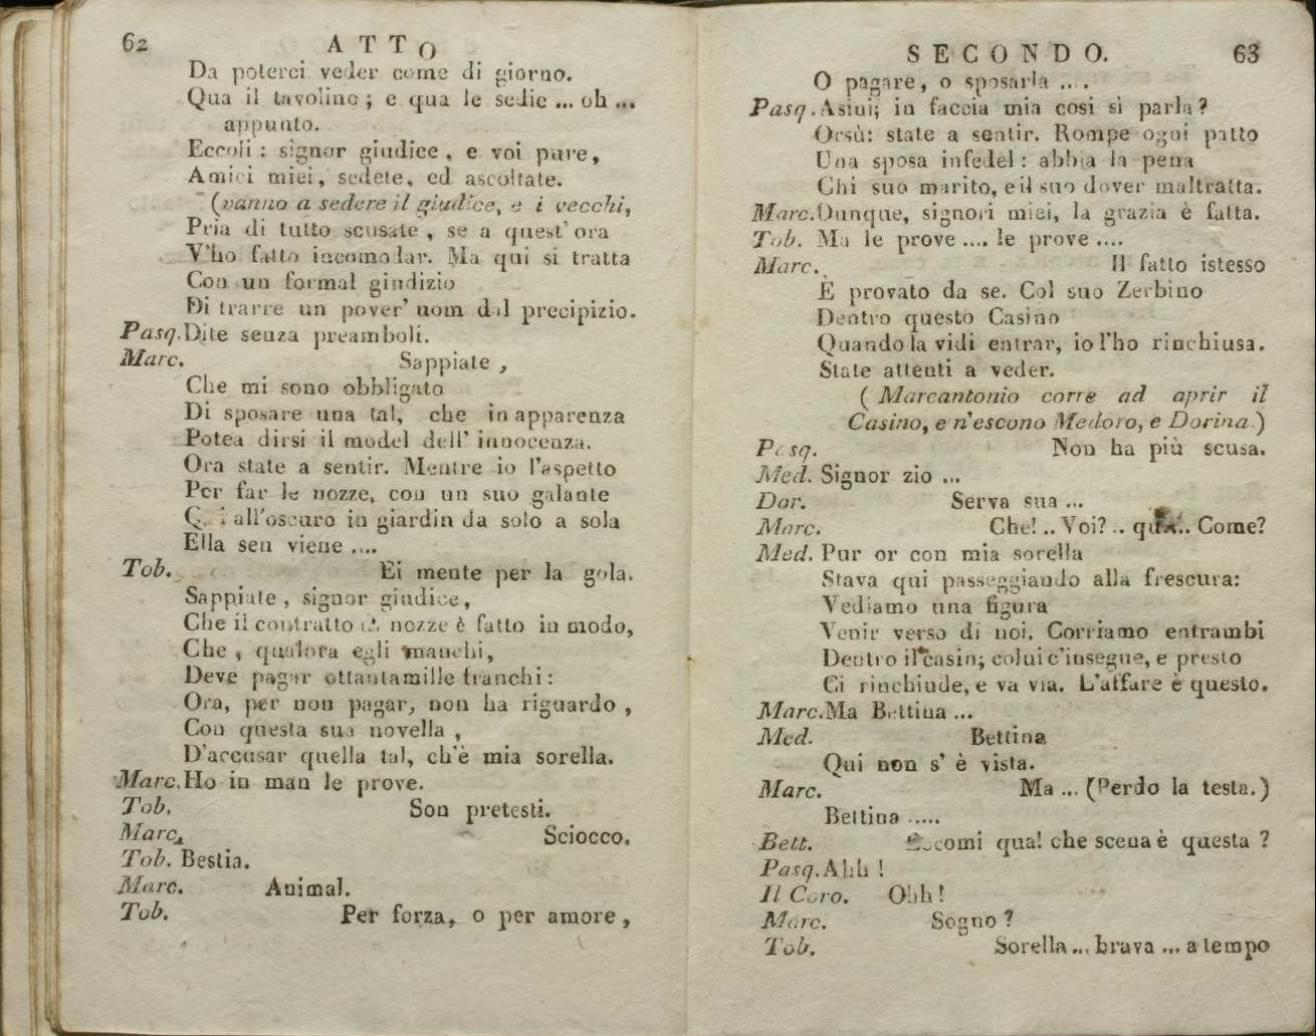 62
ATTO
Da poterci veder come di giorno.
Qua il tavoline; e qua le sedie ... oh ...
appunto.
Eccoli: signor giudice, e voi pure,
Amici miei, sedete, ed ascoltate.
(vanno a sedere il giudice, e i vecchi,
Pria di tutto scusate, se a quest' ora
V'ho fatto incomodar. Ma qui si tratta
Con un formal giudizio
Di trarre un pover' uom dal precipizio.
Pasq. Dite senza preamboli.
Marc. Sappiate,
Che mi sono obbligato
Di sposare una tal, che in apparenza
Potea dirsi il model dell' innocenza.
Ora state a sentir. Mentre io l'aspetto
Per far le nozze, con un suo galante
Qui all'oscuro in giardin da solo a sola
Ella sen viene ....
Tob. Ei mente per la gola.
Sappiate, signor giudice,
Che il contratto di nozze è fatto in modo,
Che, qualora egli manchi,
Deve pagar ottantamille franchi:
Ora, per non pagar, non ha riguardo,
Con questa sua novella,
D'accusar quella tal, ch'è mia sorella.
Marc. Ho in man le prove.
Tob. Son pretesti.
Marc. Sciocco.
Tob. Bestia.
Marc. Animal.
Tob. Per forza, o per amore,
SECONDO.
63
O pagare, o sposarla ....
Pasq. Asini; in faccia mia così si parla?
Orsù: state a sentir. Rompe ogni patto
Una sposa infedel: abbia la pena
Chi suo marito, e il suo dover maltratta.
Marc. Dunque, signori miei, la grazia è fatta.
Tob. Ma le prove .... le prove ....
Marc. Il fatto istesso
È provato da se. Col suo Zerbino
Dentro questo Casino
Quando la vidi entrar, io l'ho rinchiusa.
State attenti a veder.
( Marcantonio corre ad aprir il
Casino, e n'escono Medoro, e Dorina.)
Pasq. Non ha più scusa.
Med. Signor zio ...
Dor. Serva sua ...
Marc. Che! .. Voi? .. qua.. Come?
Med. Pur or con mia sorella
Stava qui passeggiando alla frescura:
Vediamo una figura
Venir verso di noi. Corriamo entrambi
Dentro il casin; colui c'insegue, e presto
Ci rinchiude, e va via. L'affare è questo.
Marc. Ma Bettina ...
Med. Bettina
Qui non s' è vista.
Marc. Ma ... (Perdo la testa.)
Bettina .....
Bett. Eccomi qua! che scena è questa ?
Pasq. Ahh !
Il Coro. Ohh!
Marc. Sogno ?
Tob. Sorella ... brava ... a tempo